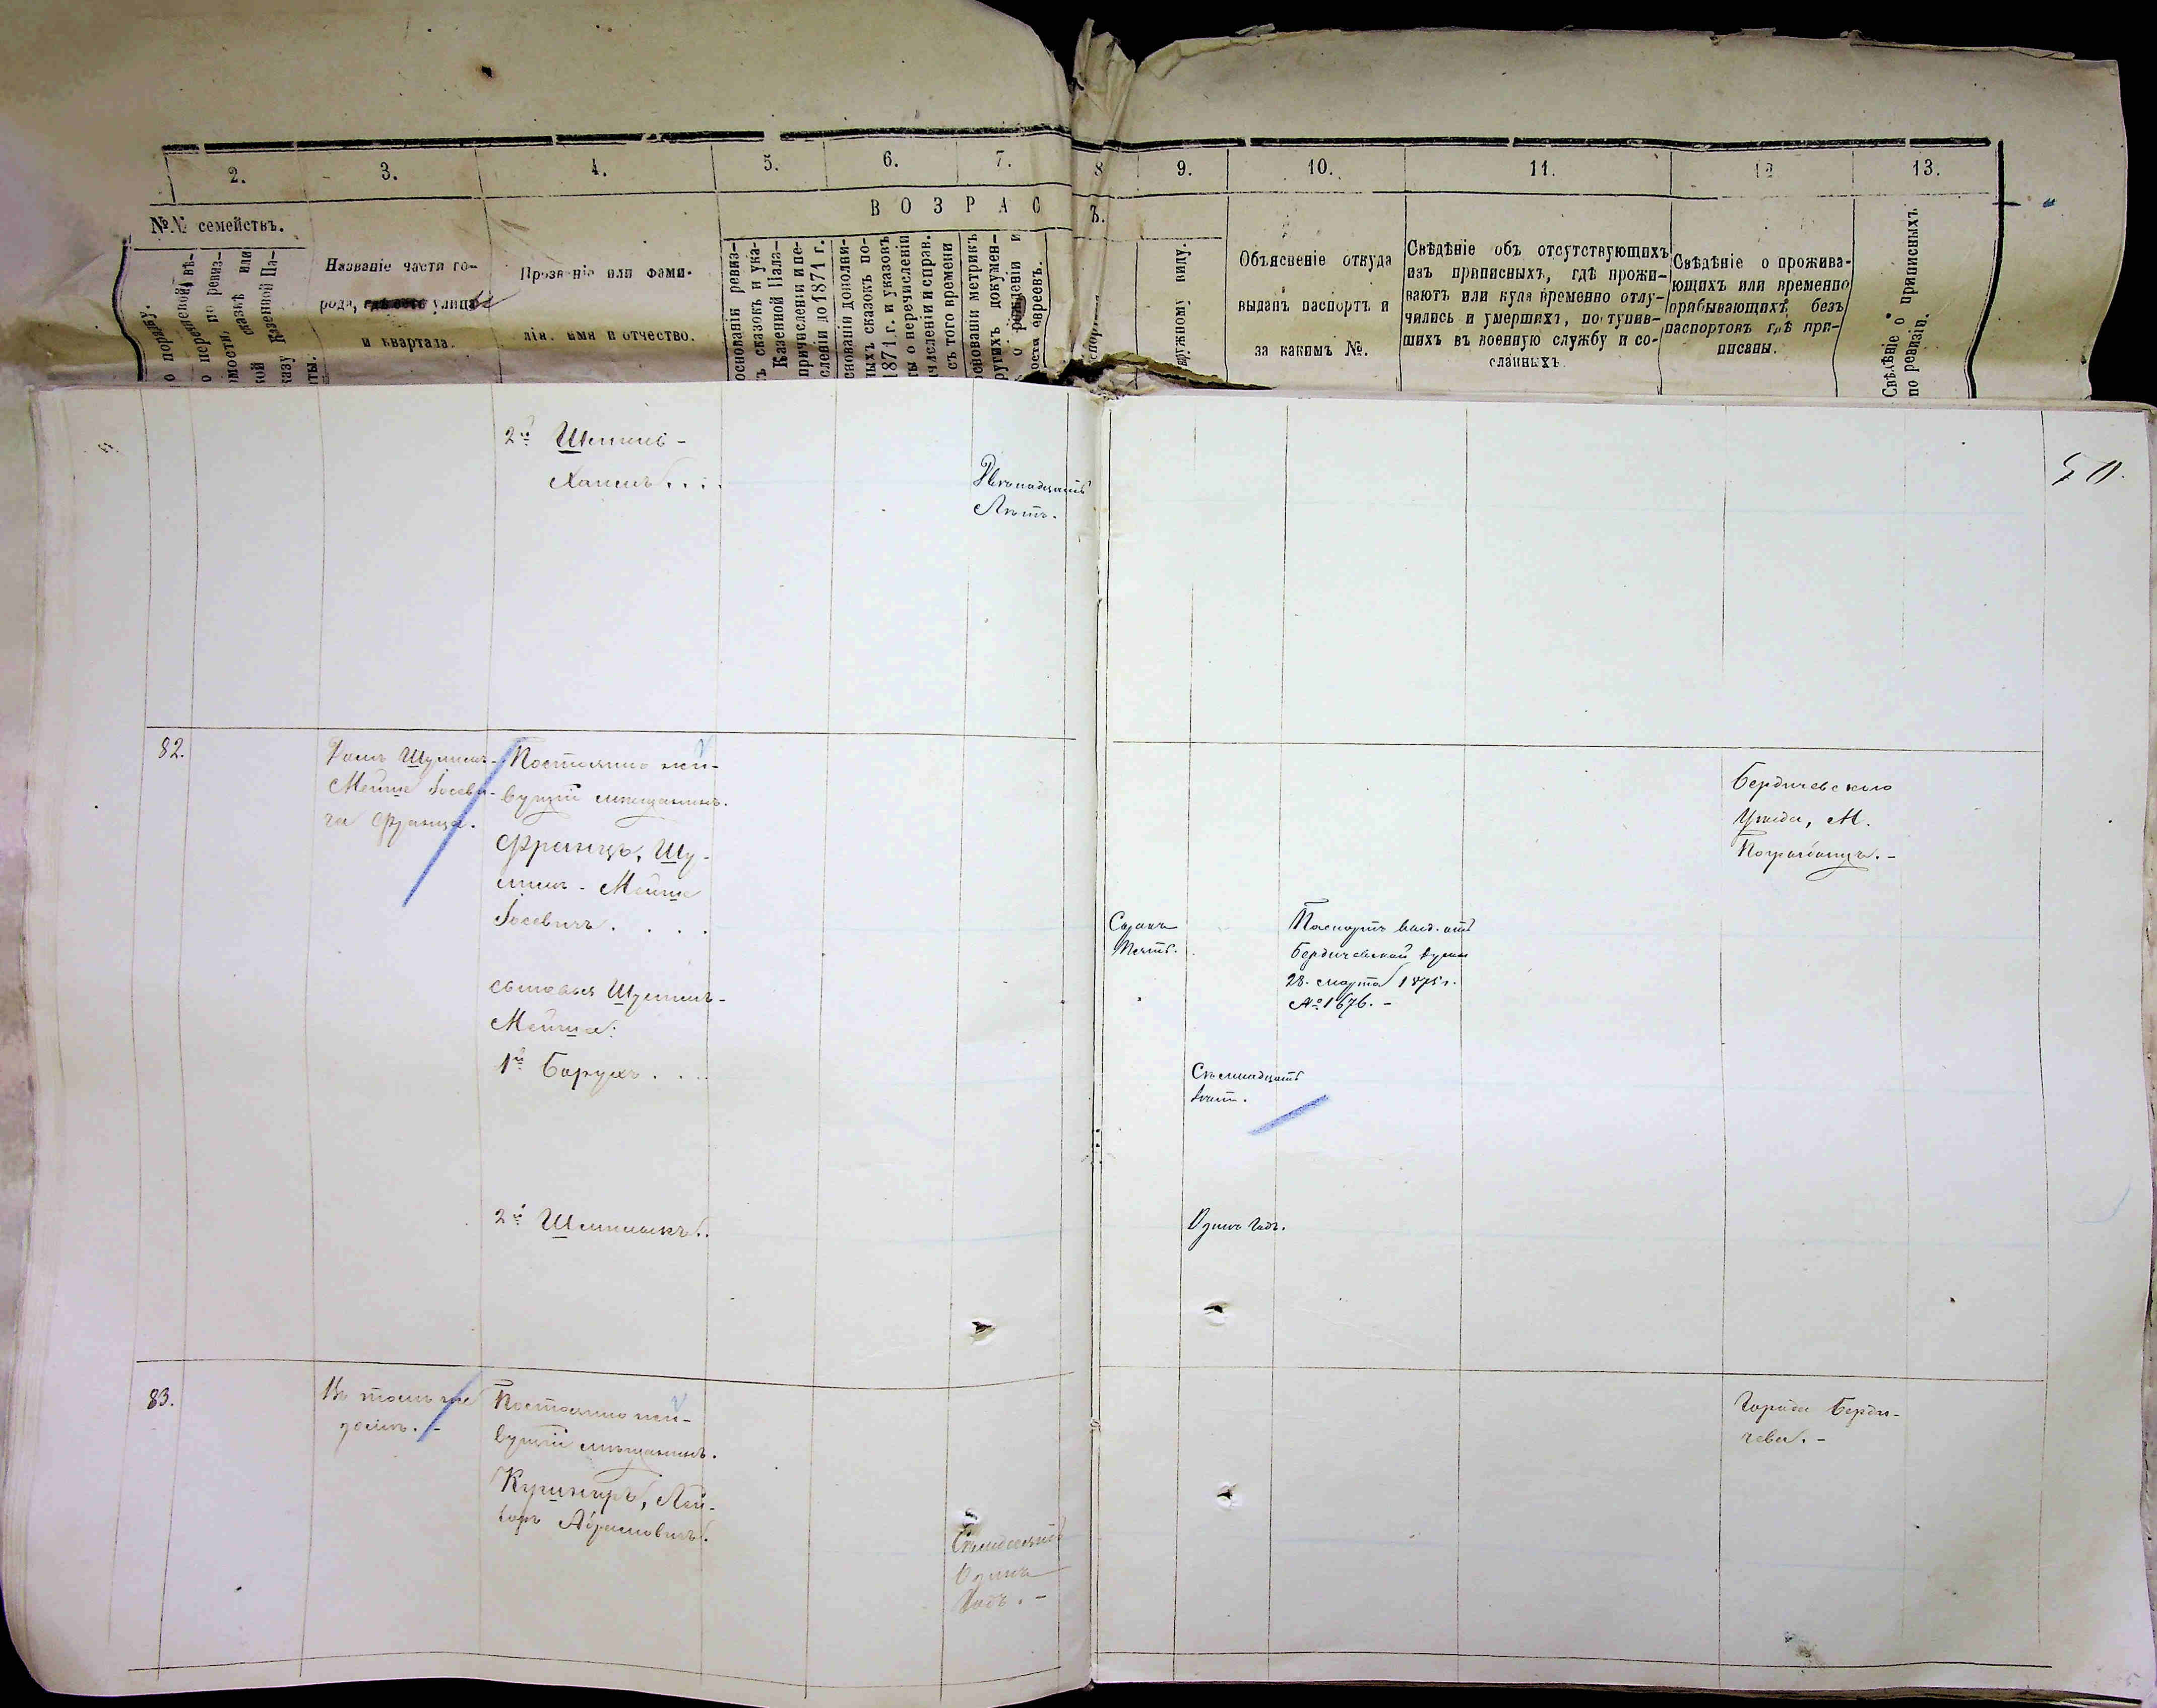 2.
3.
4.
5.
6.
7.
8
9.
10.
11.
12
13.
В О З Р А С Ъ.
№№ семействъ.
Названіе части го-
рода, улица
и квартала.
Прозваніе или фами-
лія, имя и отчество.
основаніи ревиз-
ъ сказокъ и ука-
Казенной Пала-
причисленіи и пе-
сленіи до 1871 г.
основаніи дополни-
ныхъ сказокъ по-
1871 г. и указовъ
ты о перечисленіи
ачисленіи и справ.
съ того времени
основаніи метрикъ
ругихъ докумен-
о рожденіи и
евреевъ.
аружному виду.
Объясненіе откуда
выданъ паспортъ и
за какимъ №.
Свѣдѣніе объ отсутствующихъ
изъ приписныхъ, гдѣ прожи-
ваютъ или куда временно отлу-
чились и умершихъ, поступив-
шихъ въ военную службу и со-
сланныхъ
Свѣдѣніе о прожива-
ющихъ или временно
прибывающихъ безъ
паспортовъ гдѣ при-
писаны.
Свѣдѣніе о приписныхъ
по ревизіи.
о порядку.
50.
2й
Двенадцать
Лѣтъ.
82.
Домъ Шулимъ-
Мейше Іосеви-
ча Франца.
Постоянно жи-
вущій мѣщанинъ.
Францъ, Шу-
лимъ-Мейше
Іосевичъ . . . .
Сорокъ
Шесть.
Паспортъ выд. отъ
Бердичевской думы
28. марта 1875 г.
№ 1676. -
Бердичевскаго
Уѣзда, М.
Погребищъ. -
сыновья Шулимъ-
Мейше:
1й Барухъ . . .
Сѣмнадцать
лѣтъ.
2й
Одинъ Годъ.
83.
Въ томъ же
домѣ. -
Постоянно жи-
вущій мѣщанинъ.
Кушниръ, Лей-
Абрамовичъ.
Семдесятъ
Одинъ
Годъ. -
Города Берди-
чева. -